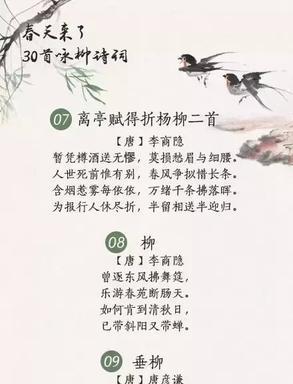 春天来了
30首咏柳诗词
07 离亭赋得折杨柳二首
【唐】李商隐
暂凭樽酒送无憀，莫损愁眉与细腰。
人世死前惟有别，春风争拟惜长条。
含烟惹雾每依依，万绪千条拂落晖。
为报行人休尽折，半留相送半迎归。
08 柳
【唐】李商隐
曾逐东风拂舞筵，
乐游春苑断肠天。
如何肯到清秋日，
已带斜阳又带蝉。
09 垂柳
【唐】唐彦谦